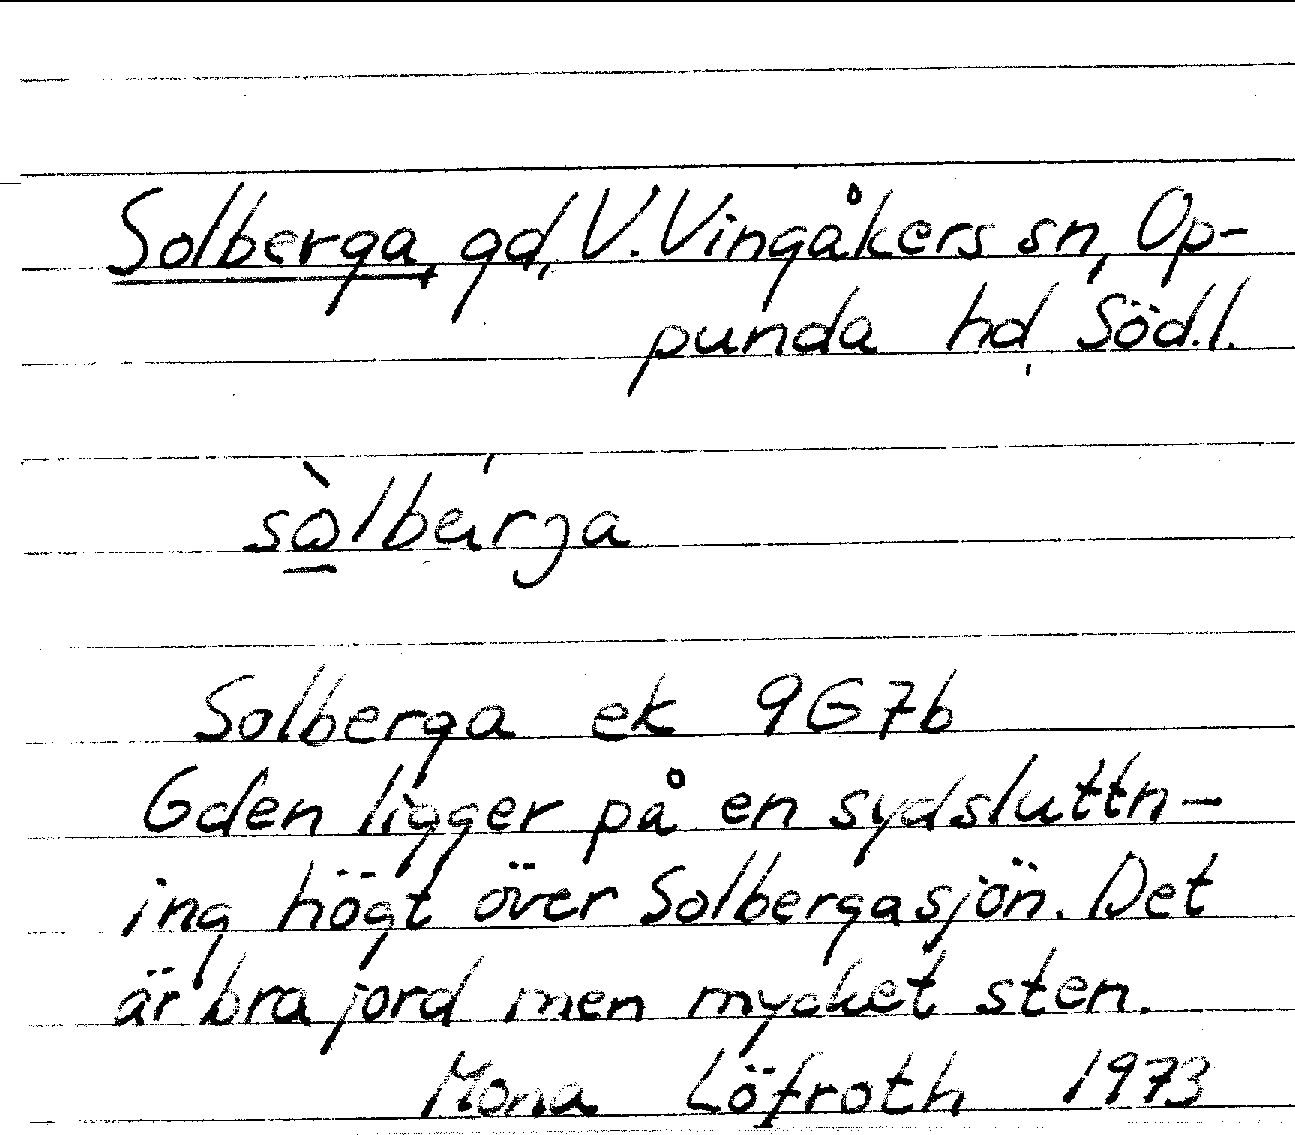 Solberga, gd, V. Vingåkers sn, Op-
punda hd, Söd.l.
sò̱lbárja
Solberga ek 9G7b
Gden ligger på en sydsluttn-
ing högt över Solbergasjön. Det
är bra jord men mycket sten.
Mona Löfroth 1973